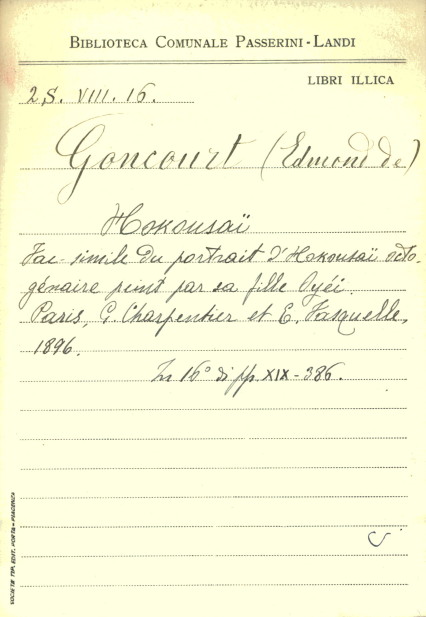 BIBLIOTECA COMUNALE PASSERINI-LANDI
LIBRI ILLICA
2S. VIII. 16.
Goncourt (Edmond de)
Hokousaï
Fac-simile du portrait d'Hokousaï octo-
génaire peint par sa fille Oyéi.
Paris, G. Charpentier et E. Fasquelle,
1896.
In 16° di pp. XIX-386.
SOCIETÀ TIP. EDIT. PORTA-PIACENZA